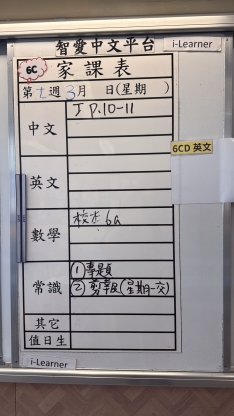 智愛中文平台
i-Learner
6C 家課表
第七週 3月 日(星期 )
中文 J P.10-11
6CD 英文
英文
數學 校本 6a
常識 ①專題
② 剪報(星期一交)
其它
值日生
i-Learner